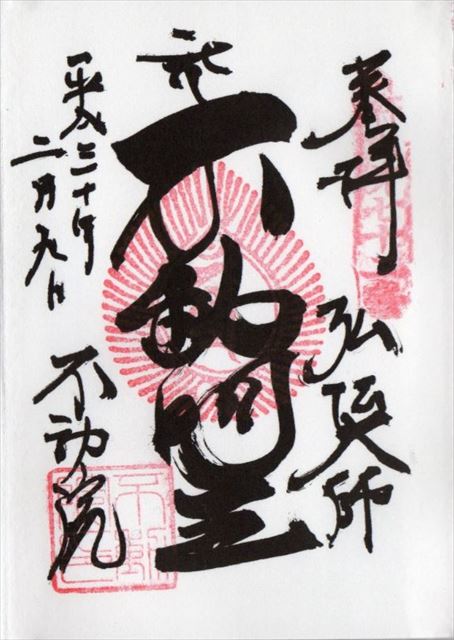 奉拝
弘法大師
不動明王
平成三十年
二月九日
不動院